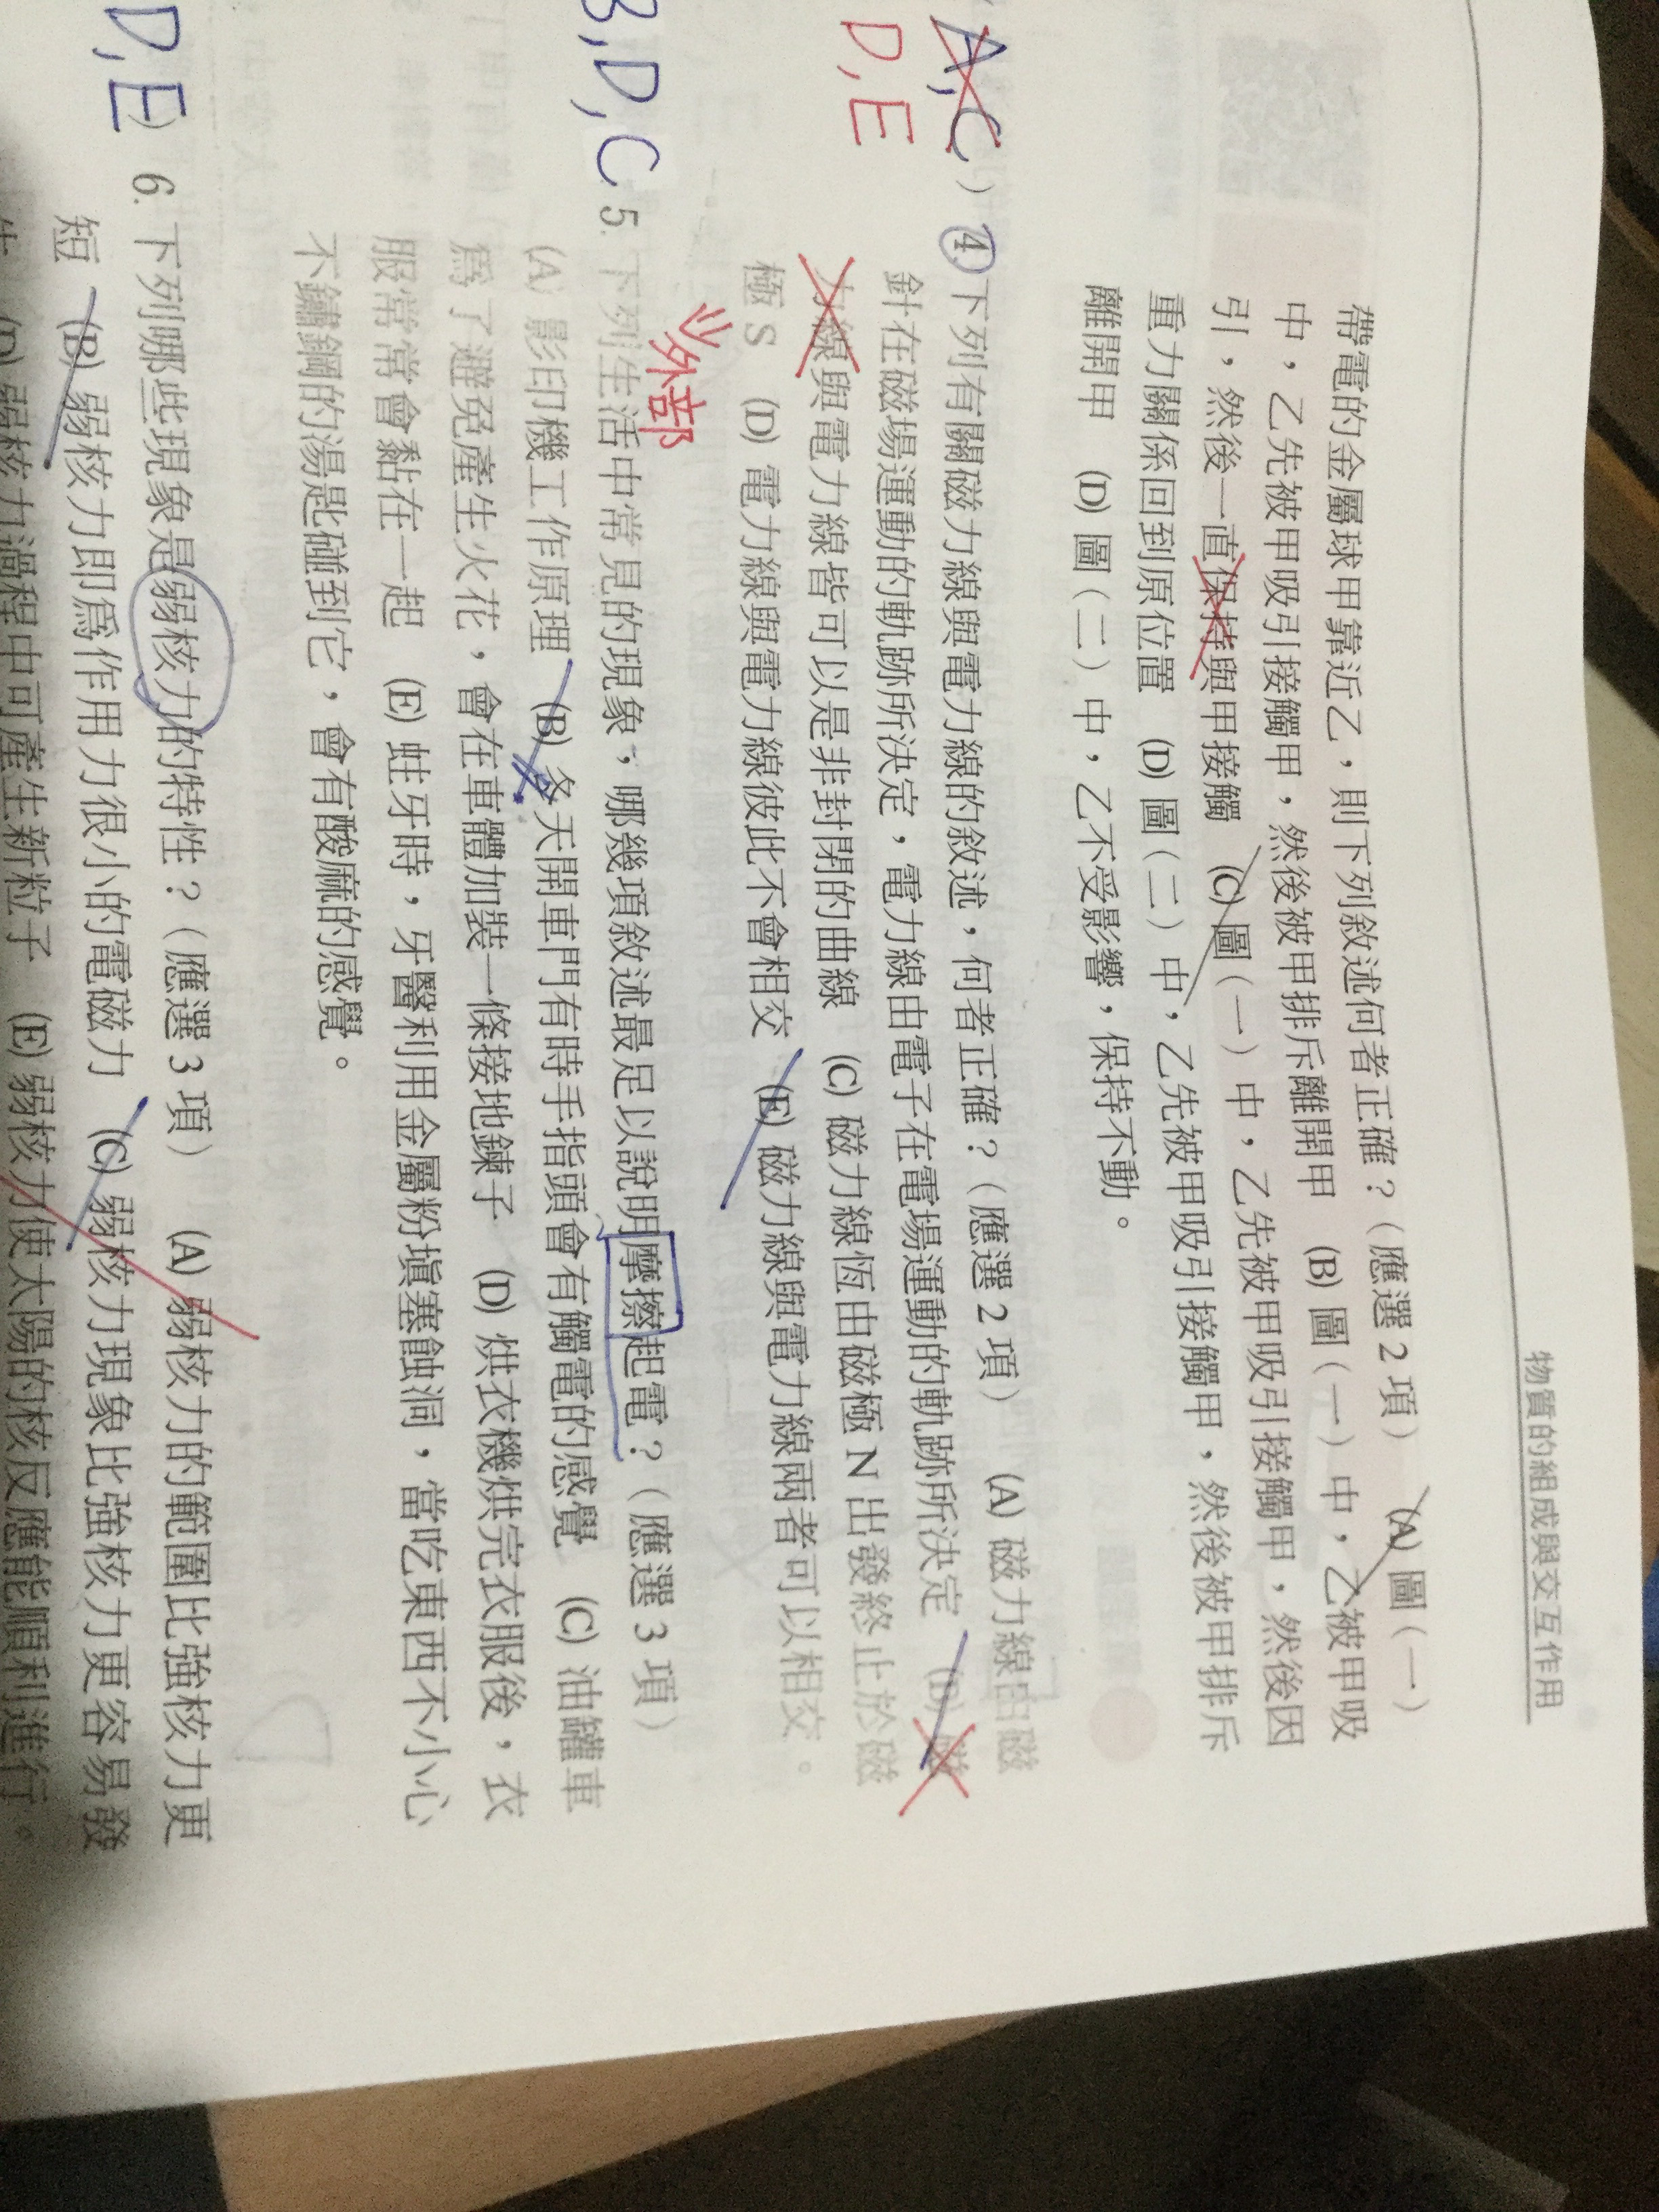 物質的組成與交互作用
帶電的金屬球甲靠近乙，則下列敘述何者正確？（應選 2 項） (A) 圖（一）
中，乙先被甲吸引接觸甲，然後被甲排斥離開甲 (B) 圖（一）中，乙被甲吸
引，然後一直保持與甲接觸 (C) 圖（一）中，乙先被甲吸引接觸甲，然後因
重力關係回到原位置 (D) 圖（二）中，乙先被甲吸引接觸甲，然後被甲排斥
離開甲 (D) 圖（二）中，乙不受影響，保持不動。
A,C
D,E
) 4.下列有關磁力線與電力線的敘述，何者正確？（應選 2 項） (A) 磁力線由磁
針在磁場運動的軌跡所決定，電力線由電子在電場運動的軌跡所決定 (B) 磁
力線與電力線皆可以是非封閉的曲線 (C) 磁力線恆由磁極 N 出發終止於磁
極 S (D) 電力線與電力線彼此不會相交 (E) 磁力線與電力線兩者可以相交。
外部
B,D,C 5. 下列生活中常見的現象，哪幾項敘述最足以說明摩擦起電？（應選 3 項）
(A) 影印機工作原理 (B) 冬天開車門有時手指頭會有觸電的感覺 (C) 油罐車
為了避免產生火花，會在車體加裝一條接地鍊子 (D) 烘衣機烘完衣服後，衣
服常常會黏在一起 (E) 蛀牙時，牙醫利用金屬粉填塞蝕洞，當吃東西不小心
不鏽鋼的湯匙碰到它，會有酸麻的感覺。
D,E ) 6. 下列哪些現象是弱核力的特性？（應選 3 項） (A) 弱核力的範圍比強核力更
短 (B) 弱核力即為作用力很小的電磁力 (C) 弱核力現象比強核力更容易發
生 (D) 弱核力過程中可產生新粒子 (E) 弱核力使太陽的核反應能順利進行。